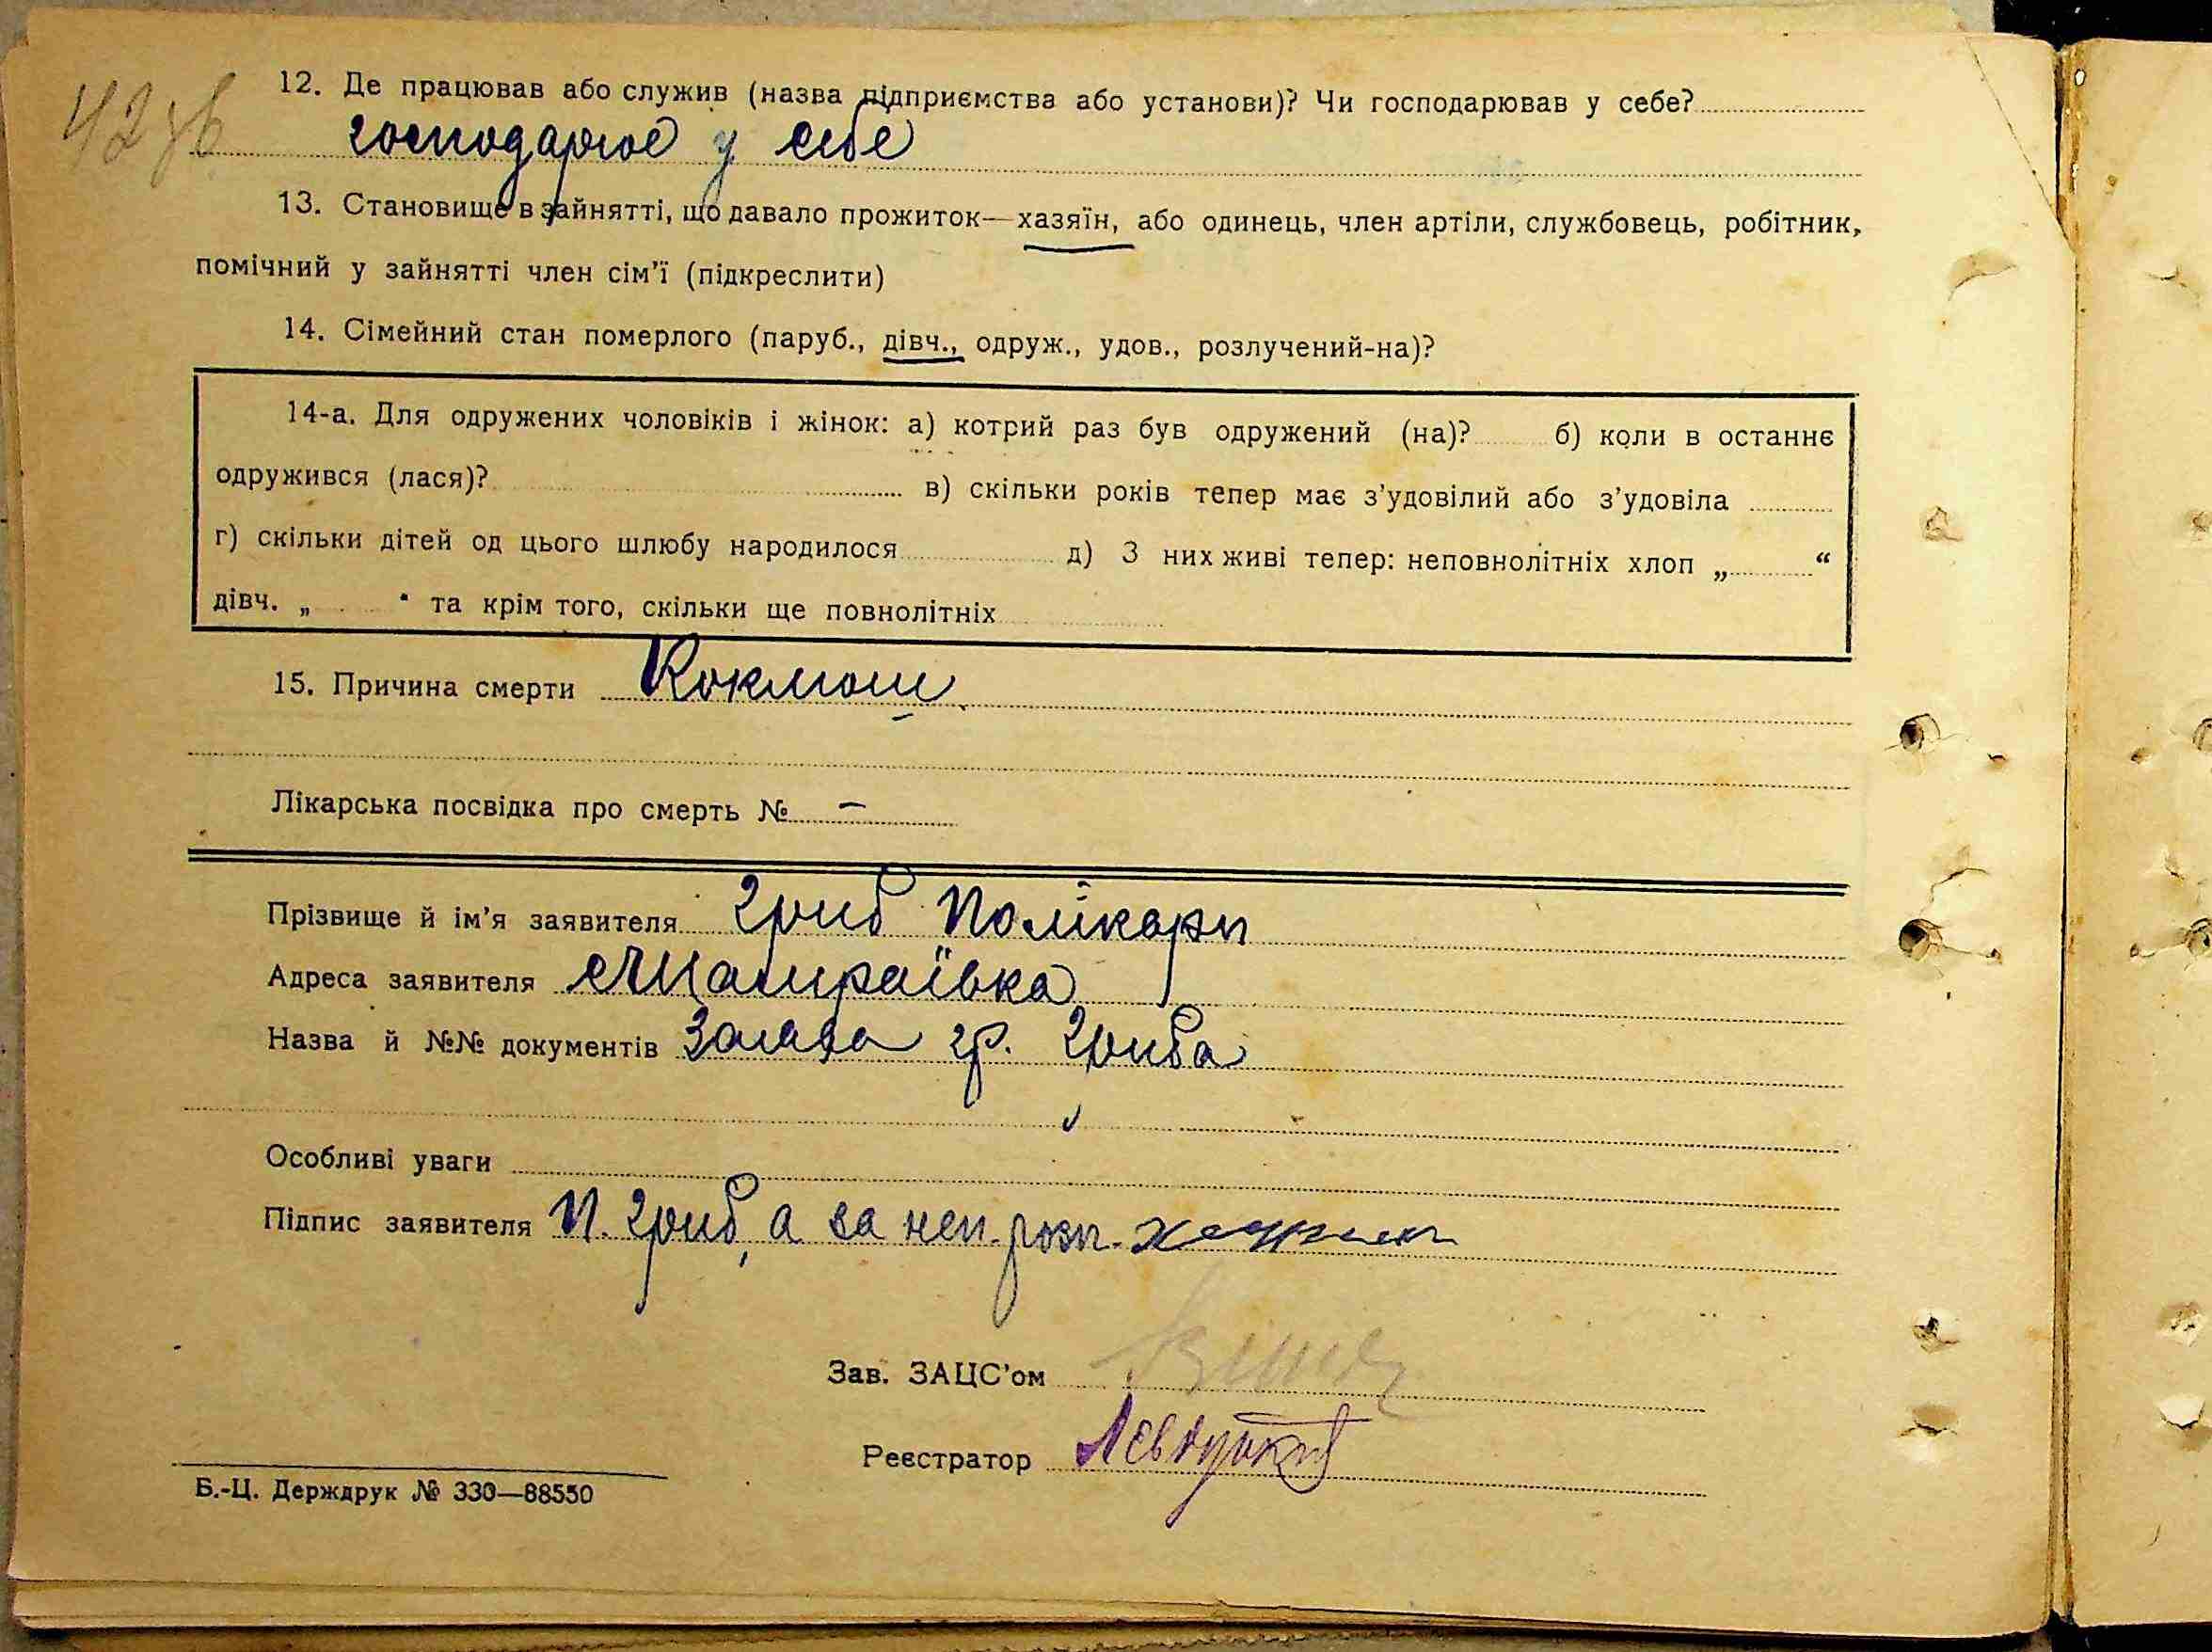 42 зв
12. Де працював або служив (назва підприємства або установи)? Чи господарював у себе?
господарює у себе
13. Становище в зайнятті, що давало прожиток—хазяїн, або одинець, член артіли, службовець, робітник,
помічний у зайнятті член сім’ї (підкреслити)
14. Сімейний стан померлого (паруб., дівч., одруж., удов., розлучений-на)?
14-а. Для одружених чоловіків і жінок: а) котрий раз був одружений (на)? б) коли в останнє
одружився (лася)? в) скільки років тепер має з’удовілий або з’удовіла
г) скільки дітей од цього шлюбу народилося д) З них живі тепер: неповнолітніх хлоп „ “
дівч. „ “ та крім того, скільки ще повнолітніх
15. Причина смерти Коклюш
Лікарська посвідка про смерть № —
Прізвище й ім’я заявителя Гриб Полікарп
Адреса заявителя
Назва й №№ документів Заява гр. Гриба
Особливі уваги
Підпис заявителя П. Гриб, а за неп. розп.
Зав. ЗАЦС’ом
Реєстратор
Б.-Ц. Держдрук № 330—88550